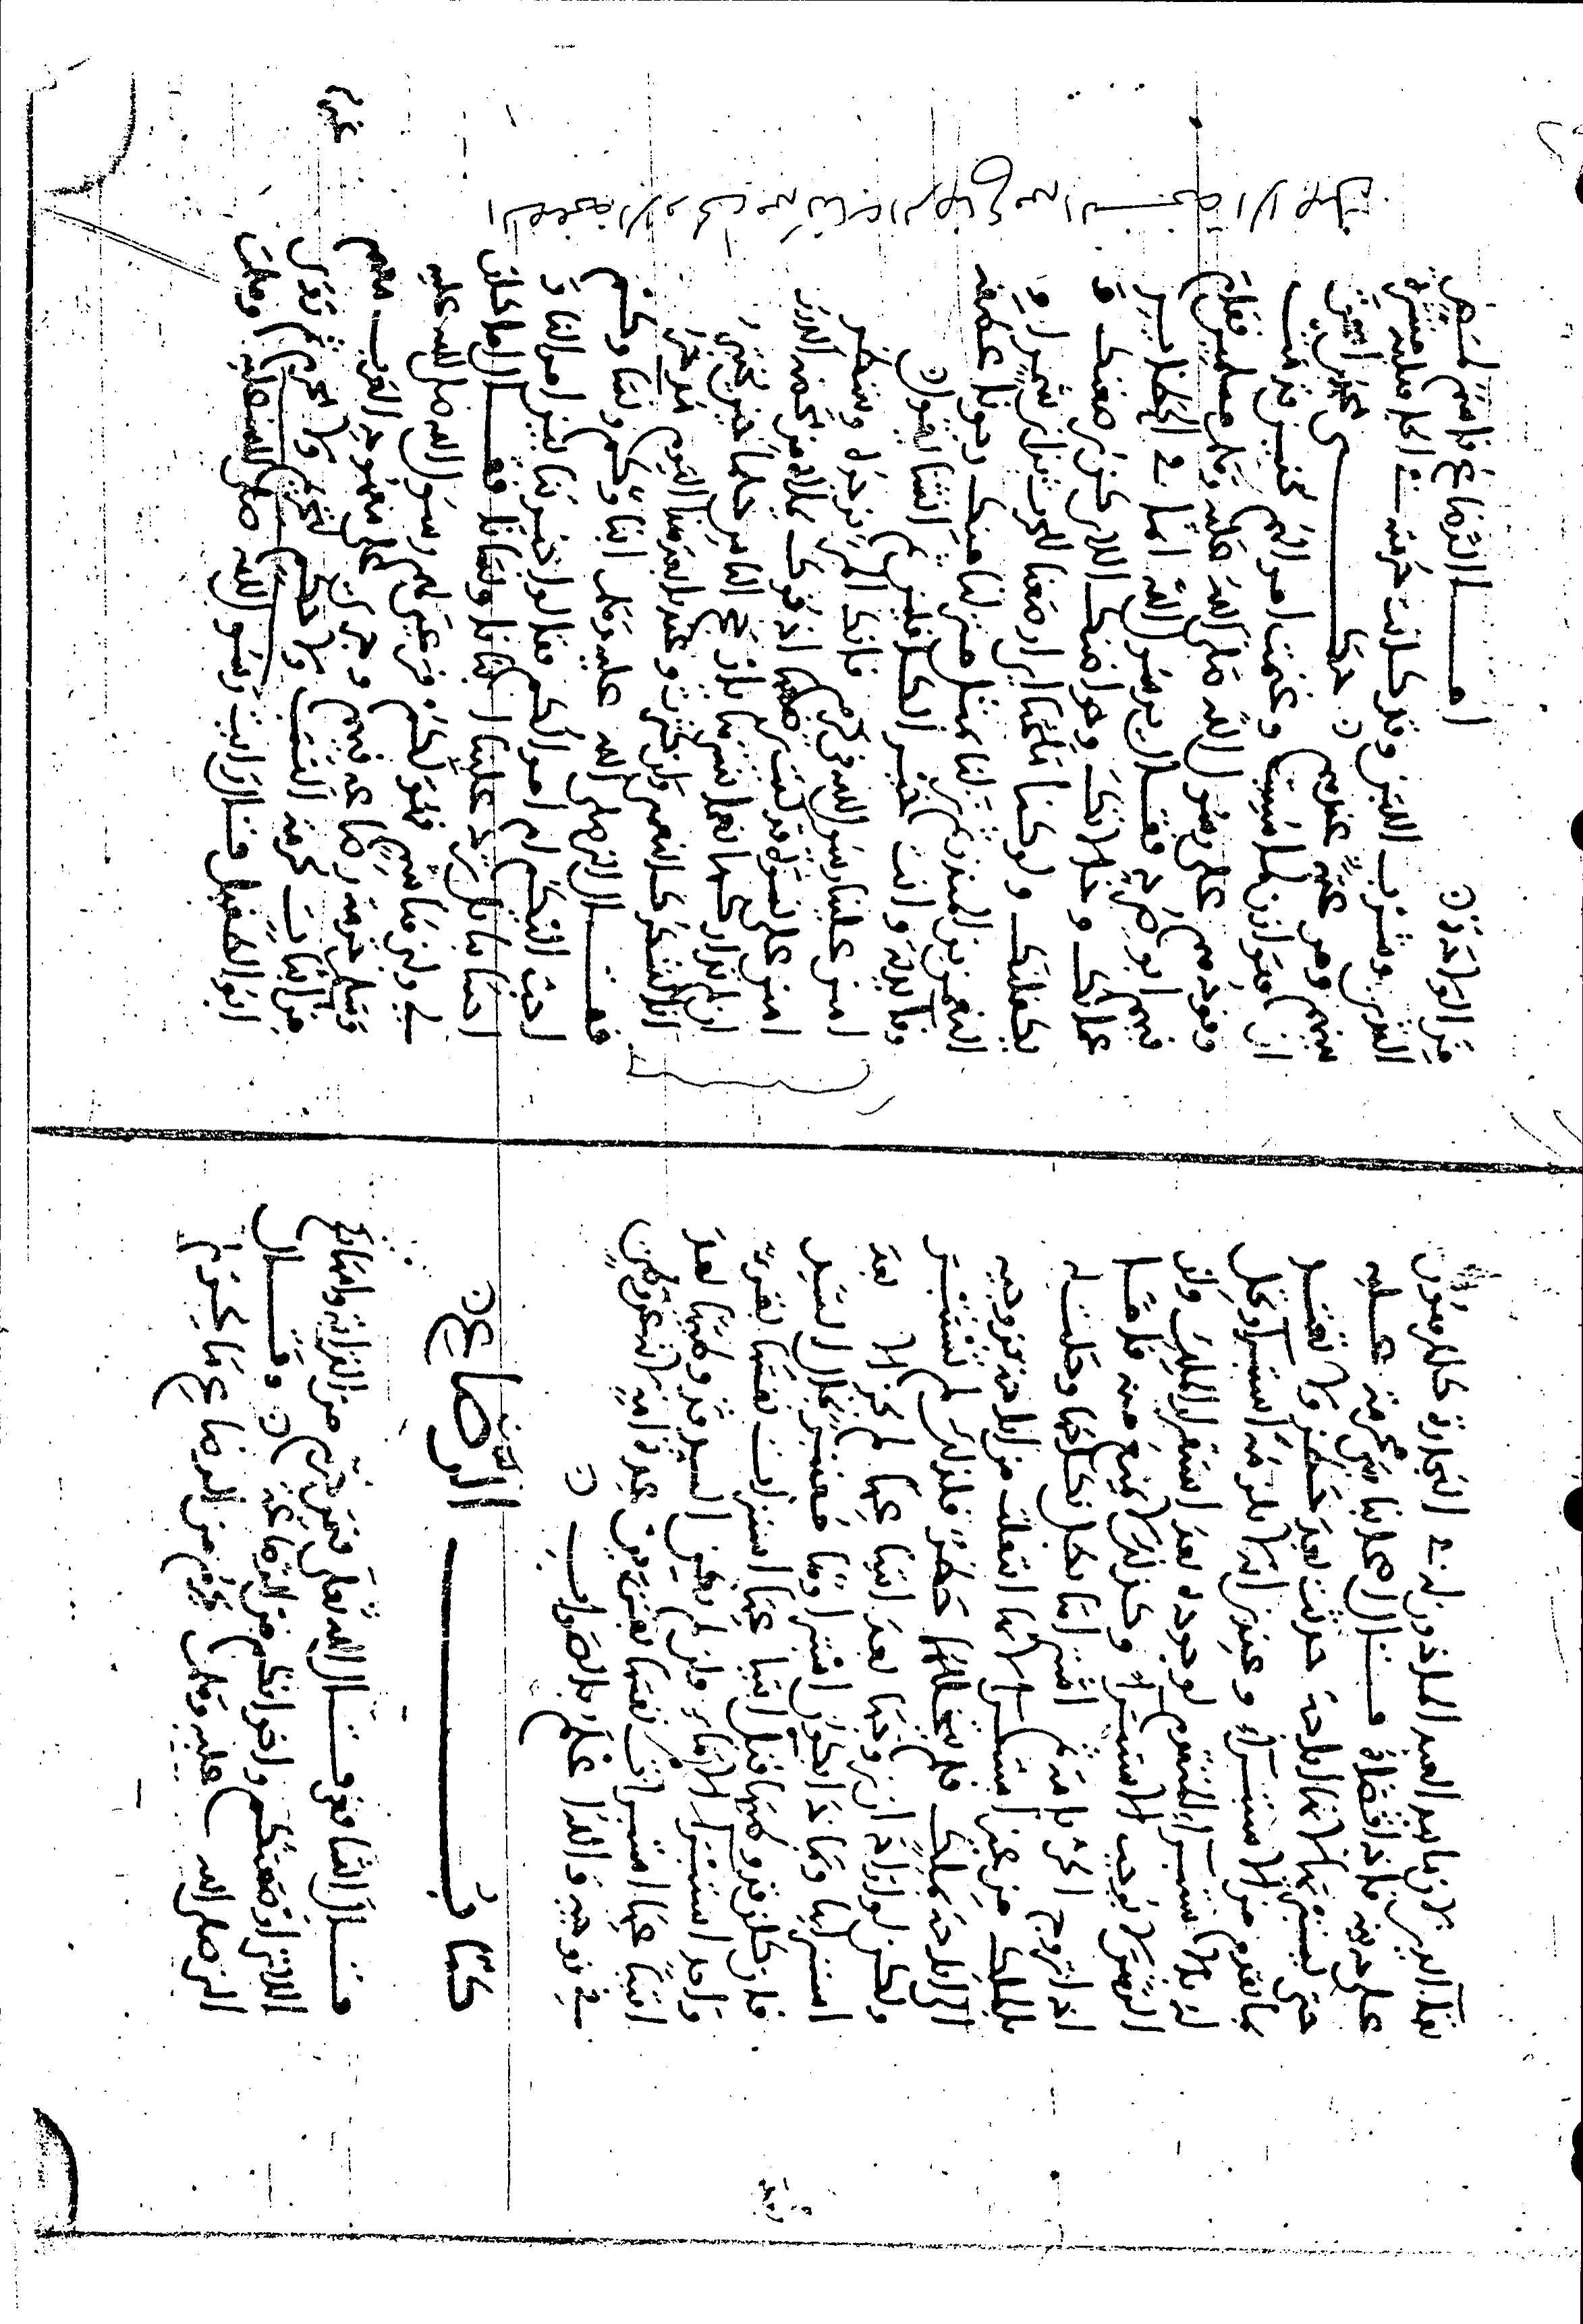 بقا الدين لان ما بيد العبد الماذون له في التجارة كالمرهون
على دينه فاذا قضاه محرمة عليه
حتى يستبريها لانها اباحة حدثت بعد حظر ولا يعتبر
بما تقدم من الاستبراء وعندي انه لا يلزمه استبراؤ وتحل
له بلا استبراء لوجوده بعد استقرار الملك ولان
الرهن لا يوجب الاستبراء وكذلك المنع منه فاما
اذا تزوج الحر بامة ثم اشتراها بطل نكاحها وحلت له
بالملك من غير استبراء لانها انتقلت من اباحة بزوجيه
الى اباحة بملك فلم يتخللها حظر فلذلك لم تستبر
ولكن لو اراد ان يزوجها بعد ابتياعها لم يجز الا بعد
استبرايها وبماذا يكون استبراوها معتبر بحال السيد
فان كان قد وطيها قبل ابتياعها استبرات نفسها بقرء
واحد استبراء الاماء وان لم السيد وقد وطيها بعد
ابتياعها استبرات نفسها بقرءين عدة امة لانه عن وطئ
في زوجية والله اعلم بالصواب
كتاب الرضاع
قال الشافعي قال الله تعالى فيمن حرم من القرابة وامهاتكم
اللاتي ارضعنكم واخواتكم من الرضاعة وقال
النبي صلى الله عليه وسلم يحرم من الرضاع ما يحرم
من الولادة اما الرضاع فاسم لمص
الثدي وشرب اللبن وقد كانت حرمته في الجاهلية منتشرة
بينهم ومرعية عندهم حكى محمد بن اسحق
ان هوازن لما سبيت وغنمت اموالهم بحنين قدمت
وفودهم على رسول الله صلى الله عليه وسلم مسلمين فقام
فيهم ابو صرد فقال يا رسول الله انما في الحظاير
عماتك وخالاتك وحواضنك اللاتي كن و
يكفلنك ولو كنا ملحنا اي ارضعنا للحرث بن ابي شمر او
النعمن بن المنذر ثم نزلنا بمثل منزلنا منك رجونا عطفه
وفايدته وانت خير الكافلين ثم انشا يقول
امنن علينا رسول الله في كرم فانك المرء نرجوه وننتظر
امنن على نسوة قد كنت ترضعها اذ فوك يملاه من محضها الدرر
ان لم تداركها نعماء تنشرها يا ارجح الناس حلما حين يختبر
انا لنشكر للنعمى وان كفرت وعندنا بعد هذا اليوم مدخر
فقال النبي صلى الله عليه وسلم ابناوكم ونساوكم
احب اليكم ام اموالكم فقالوا خيرتنا بين اموالنا و
احسابنا بل ترد علينا ابناءنا ونساءنا فقال اما ما كان
لي ولبني هاشم فهو لكم فرعى لهم رسول الله صلى الله عليه
وسلم حرمة رضاعه فيهم وجرى على معهود العرب معهم
من اثبات حرمة النسب ولا حكم لتحريم ولا محرم ثم روى
ابو الطفيل قال رايت رسول الله صلى الله عليه وسلم
الصفحة الاولى من كتاب الرضاع من النسخة الاصل